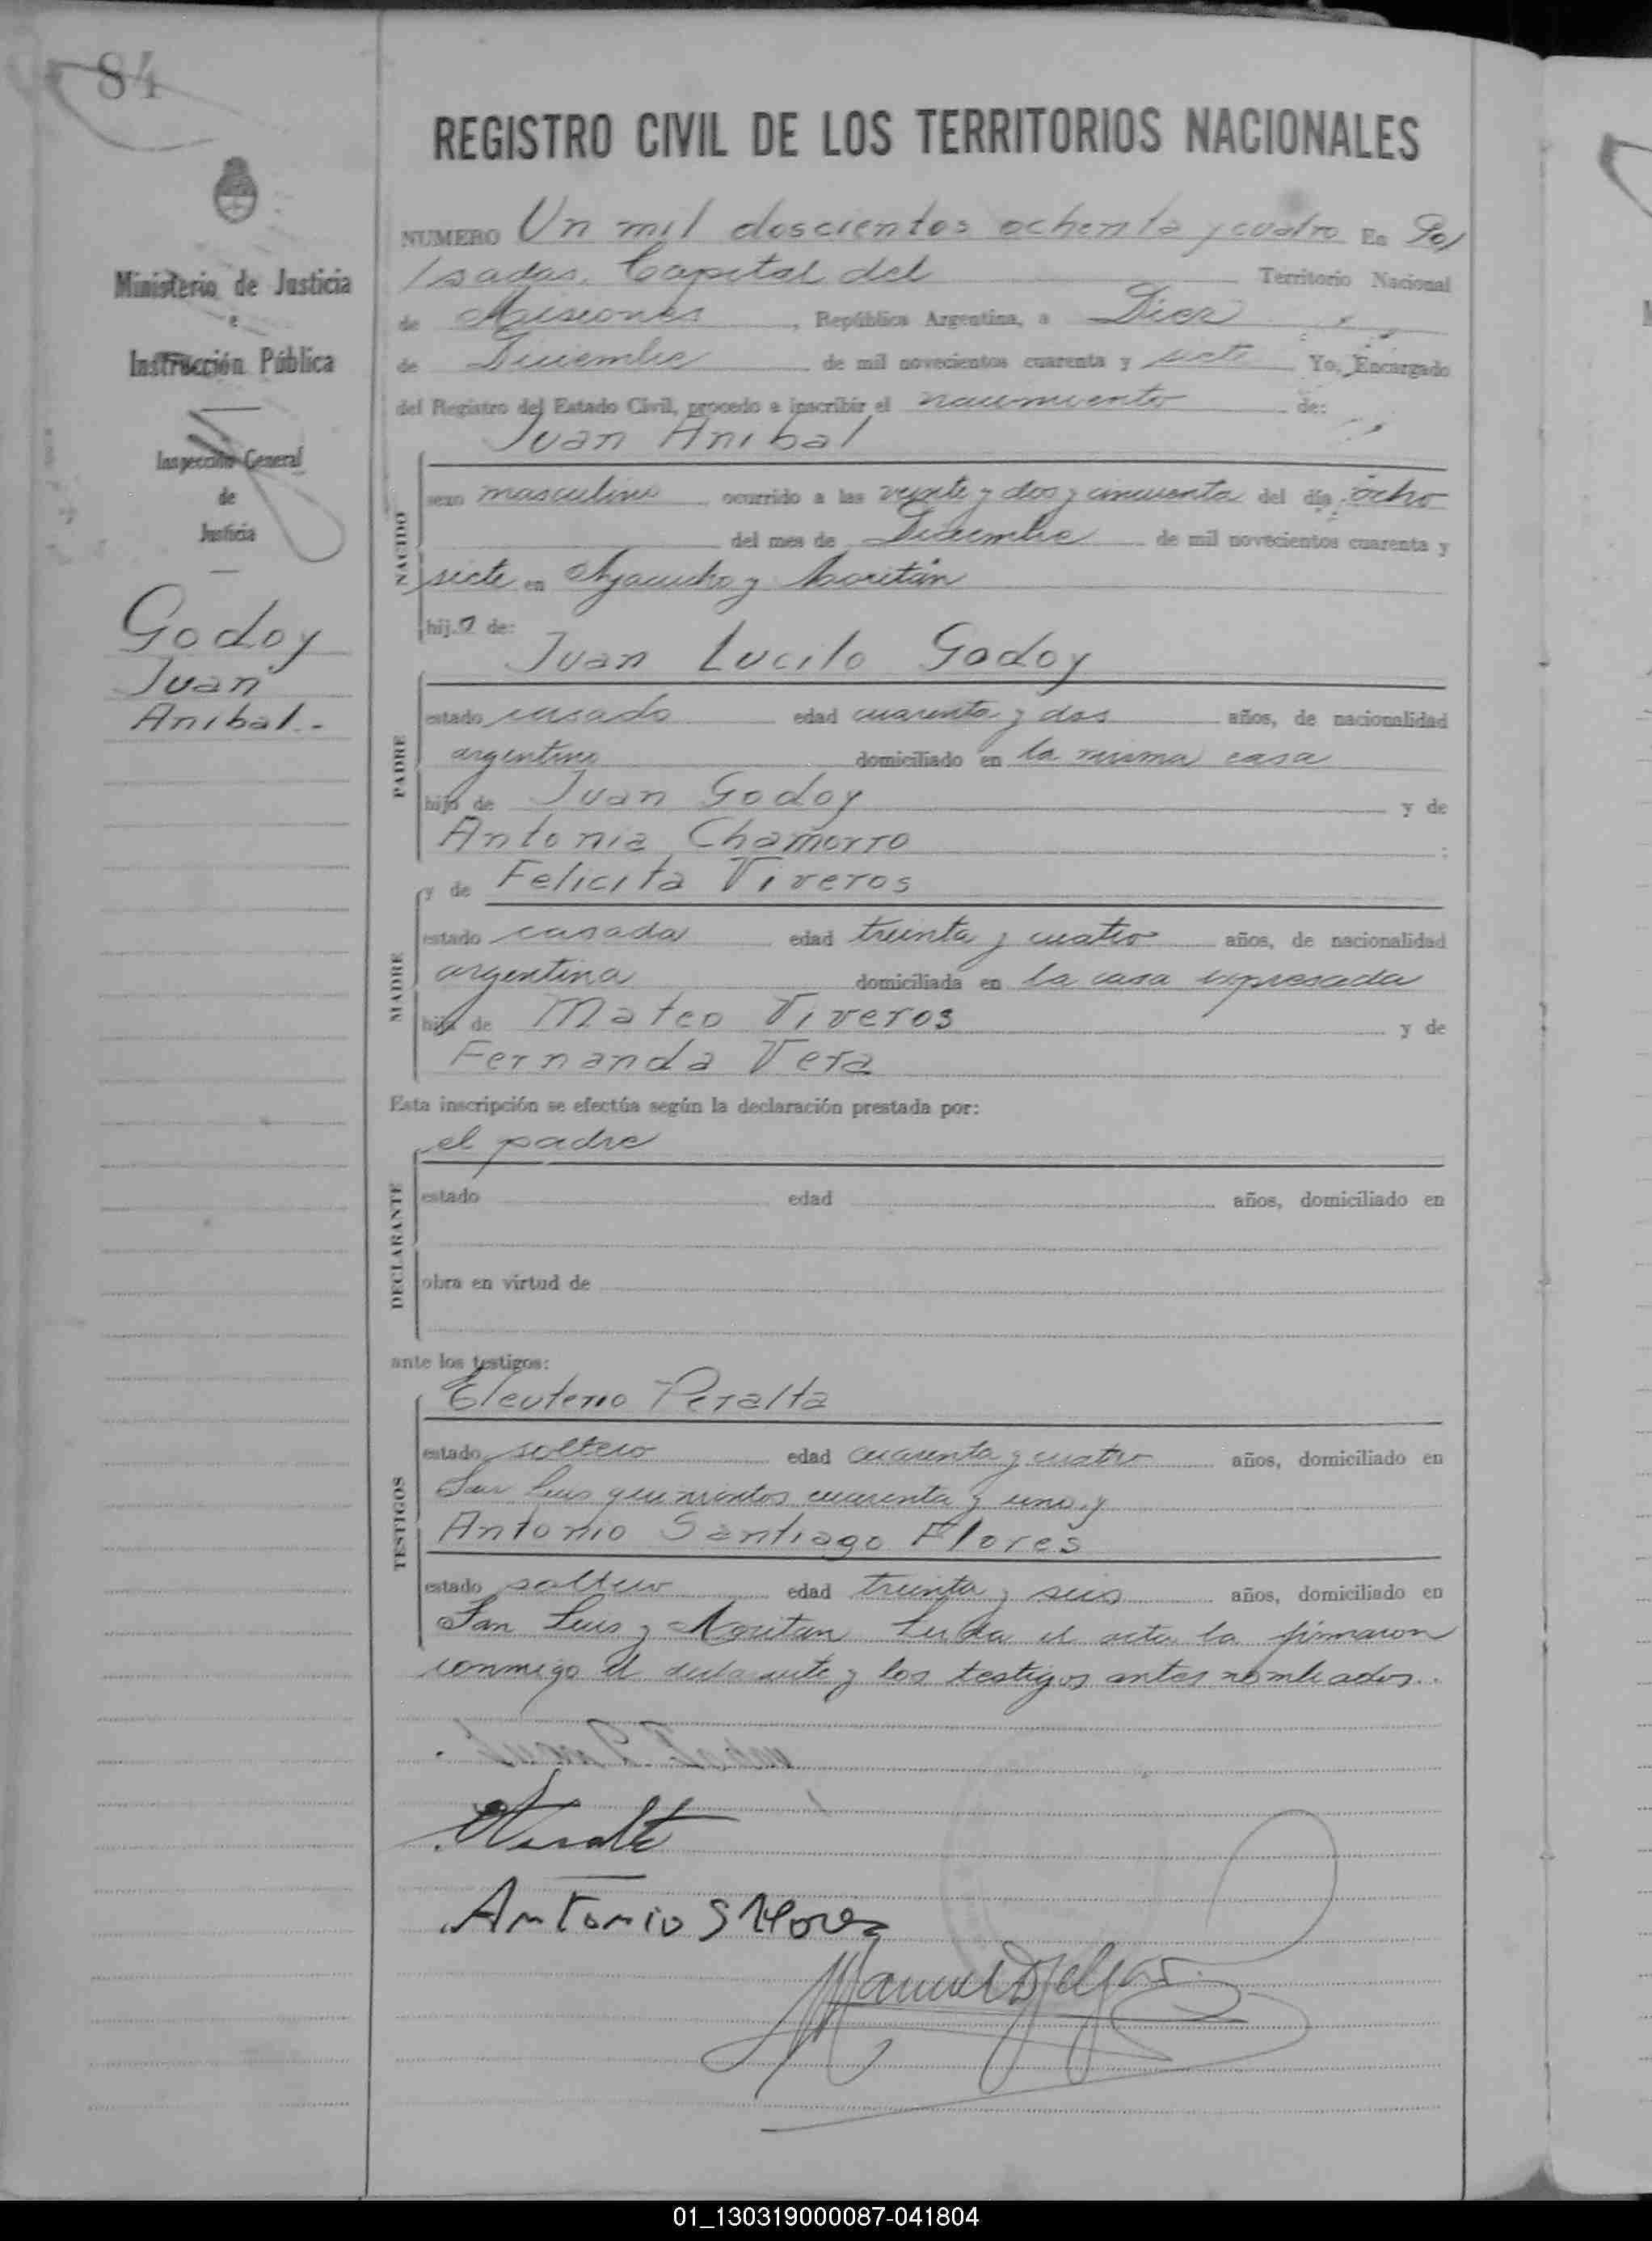 84
REGISTRO CIVIL DE LOS TERRITORIOS NACIONALES
NUMERO Un mil doscientos ochenta y cuatro En Po/
/sadas, Capital del Territorio Nacional
de Misiones, República Argentina, a Diez
de Diciembre de mil novecientos cuarenta y siete Yo, Encargado
del Registro del Estado Civil, procedo a inscribir el nacimiento de:
Juan Anibal
Ministerio de Justicia
e
Instrucción Pública
Inspección General
de
Justicia
Godoy
Juan
Anibal.-
NACIDO
sexo masculino ocurrido a las veinte y dos y cincuenta del día ocho
del mes de Diciembre de mil novecientos cuarenta y
siete en Ayacucho y
hijo de:
Juan Lucilo Godoy
PADRE
estado casado edad cuarenta y dos años, de nacionalidad
argentino domiciliado en la misma casa
hijo de Juan Godoy y de
Antonia Chamorro ;
y de Felicita Viveros
MADRE
estado casada edad treinta y cuatro años, de nacionalidad
argentina domiciliada en la casa expresada
hija de Mateo Viveros y de
Fernanda Vera
Esta inscripción se efectúa según la declaración prestada por:
el padre
DECLARANTE
estado edad años, domiciliado en
obra en virtud de
ante los testigos:
Eleuterio Peralta
TESTIGOS
estado soltero edad cuarenta y cuatro años, domiciliado en
San Luis quinientos cuarenta y uno y
Antonio Santiago Flores
estado soltero edad treinta y seis años, domiciliado en
San Luis y Moritan Leida el acta la firmaron
conmigo el declarante y los testigos antes nombrados..
EPeralta
Antonio S Flores
01_130319000087-041804